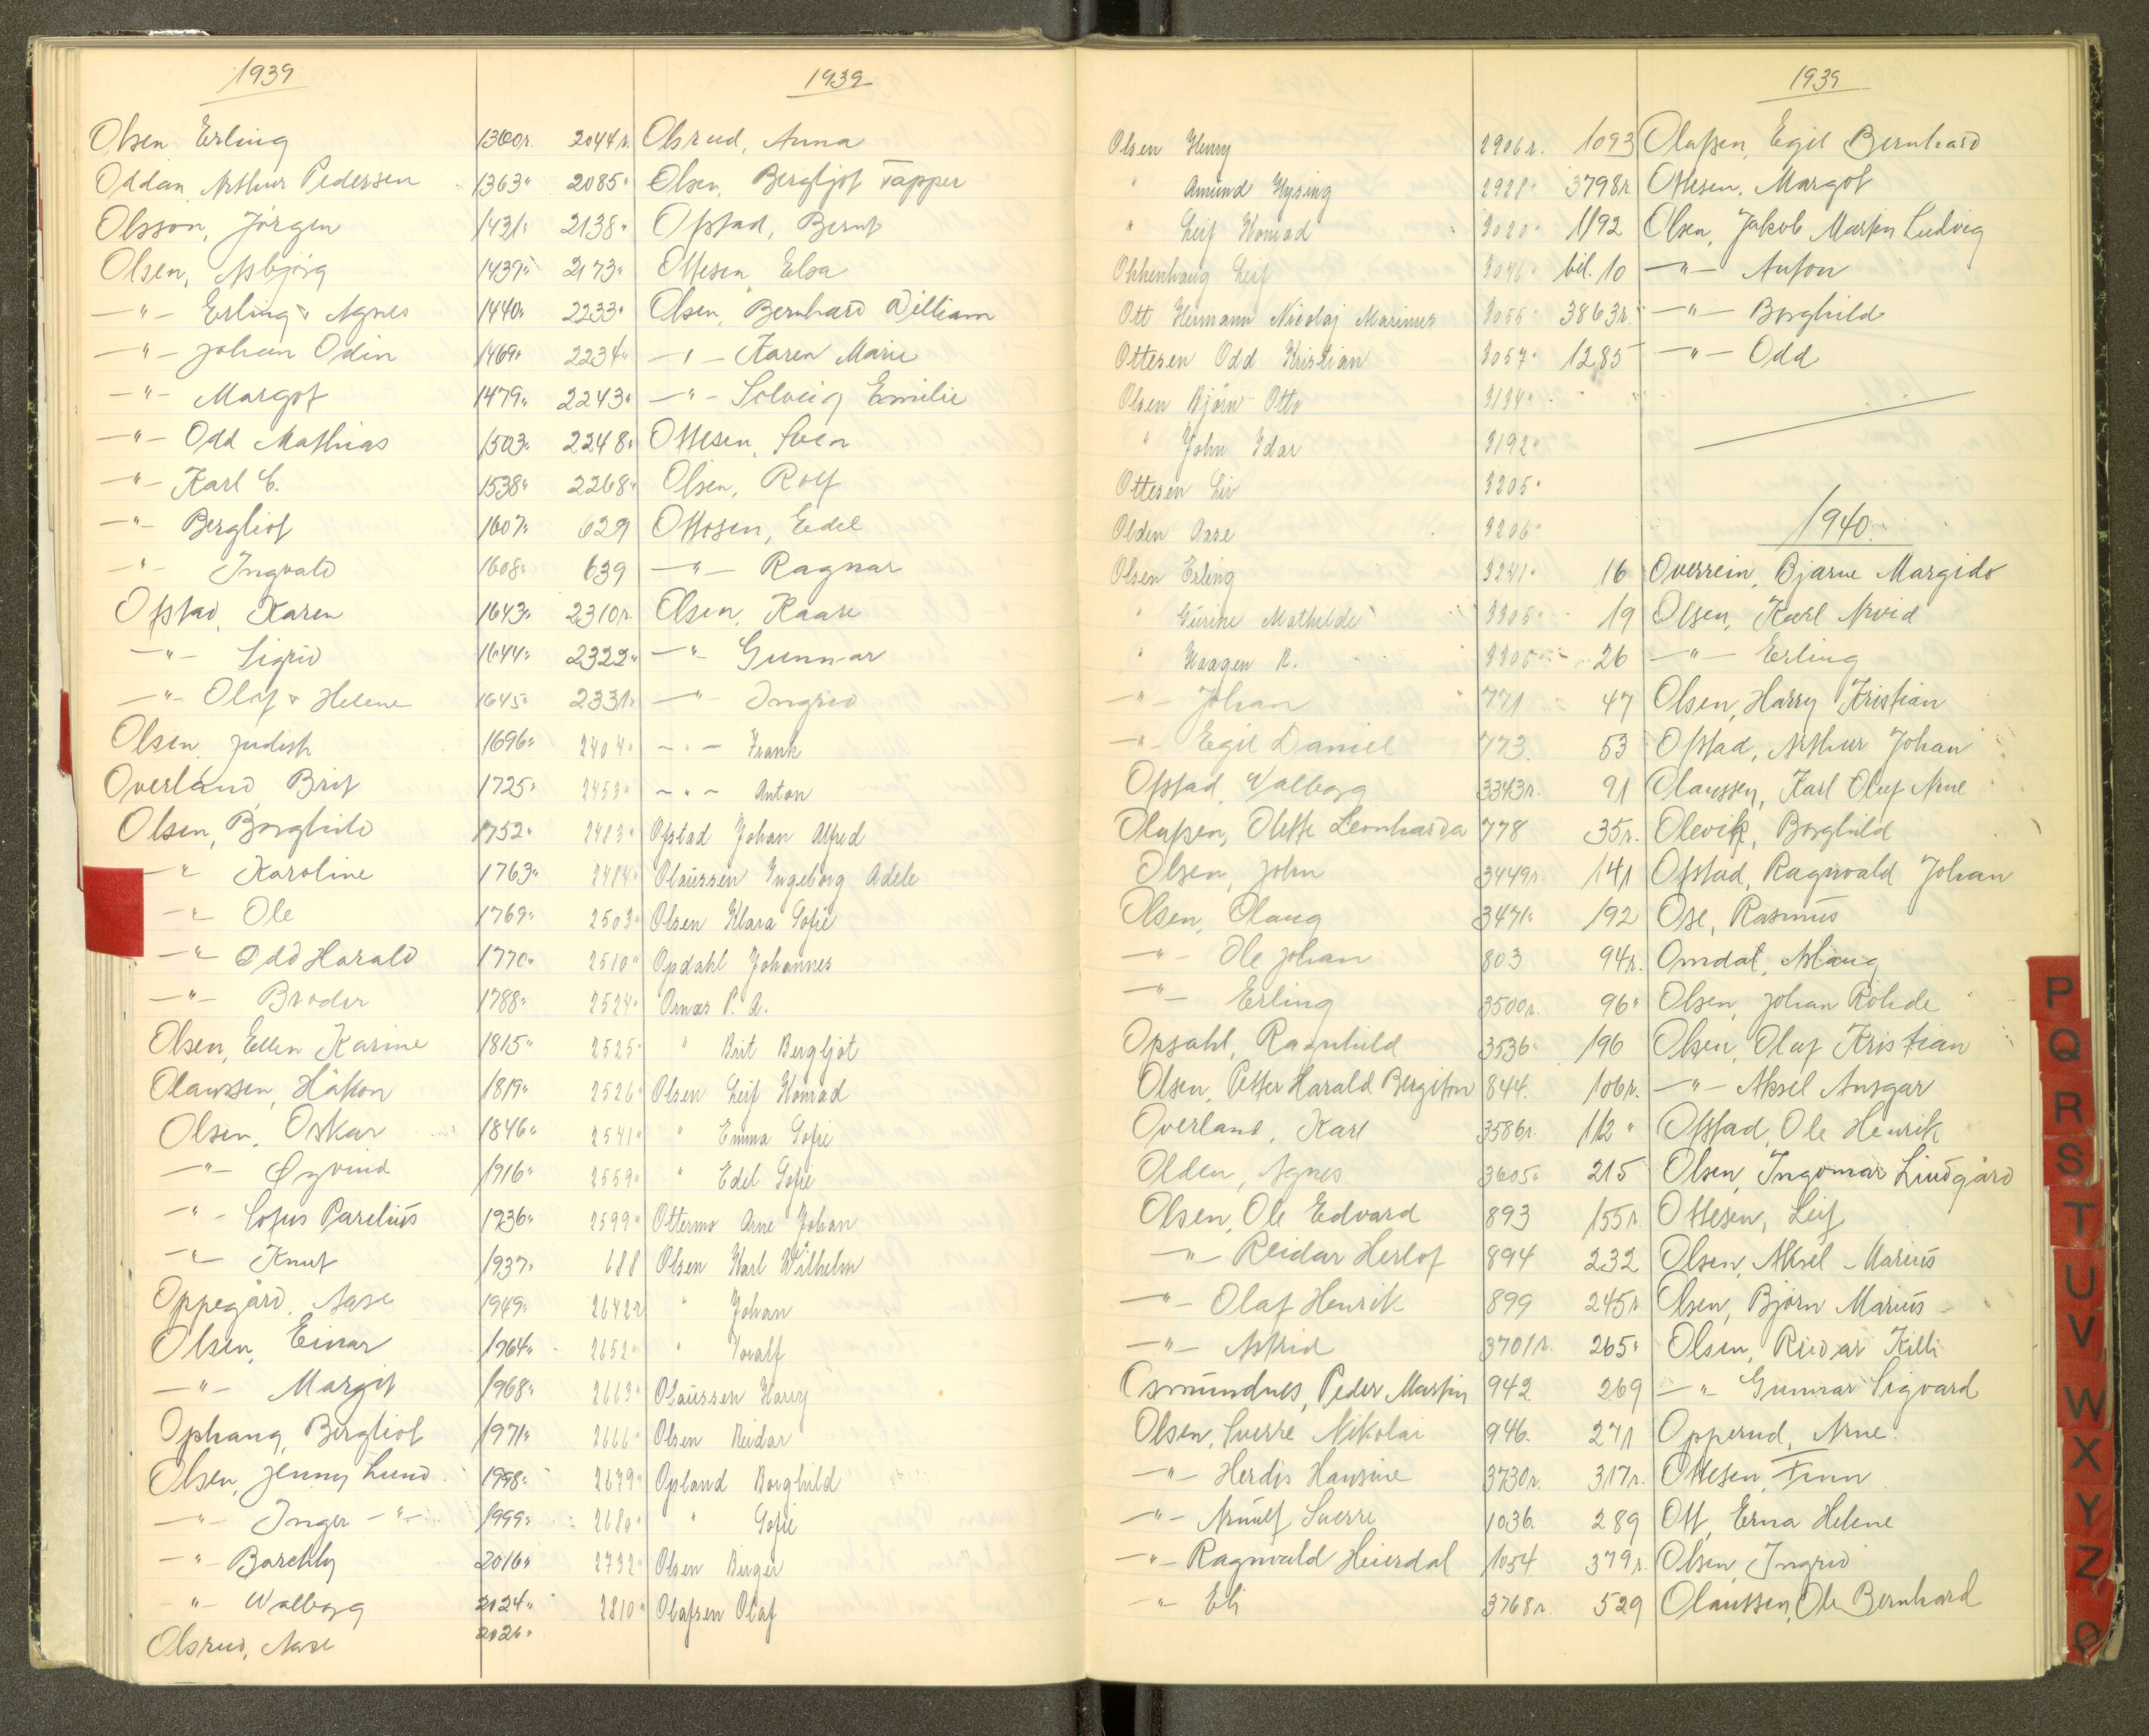 1939
Olsen Erling 1300r.
Oddan, Arthur Pedersen 1363"
Olsson, Jörgen 1431"
Olsen, Asbjörg 1439"
—"— Erling & Agnes 1440"
—"— Johan Odin 1469"
—"— Margot 1479"
—"— Odd Mathias 1503"
—"— Karl C. 1538"
—"— Bergliot 1607"
—"— Ingvald 1608"
Ofstad, Karen 1643"
—"— Sigrid 1644"
—"— Olaf & Helene 1645"
Olsen, Judith 1696"
Overland, Brit 1725"
Olsen, Borghild 1752"
—"— Karoline 1763"
—"— Ole 1769"
—"— Odd Harald 1770"
—"— Broder 1788"
Olsen, Ellen Karine 1815"
Olaussen, Håkon 1819"
Olsen, Oskar 1846"
—"— Øyvind 1916"
—"— Sofus Parelius 1936"
—"— Knut 1937"
Oppegård, Aase 1949"
Olsen, Einar 1964"
—"— Margit 1968"
Ophang, Bergliot 1971"
Olsen, Jenny Lund 1998"
—"— Inger —"— 1999"
—"— Barchly 2016"
—"— Walborg 2024"
Olsrud, Aase 2026"
1939
2044r. Olsrud, Anna
2085" Olsen, Bergljot Tapper
2138" Ofstad, Bernt
2173" Ottesen Elsa
2233" Olsen, Bernhard William
2234" —"— Karen Marie
2243" —"— Solveig Emilie
2248" Ottesen, Sven
2268" Olsen, Rolf
629 Ottosen, Edel
639 —"— Ragnar
2310r. Olsen, Kaare
2322" —"— Gunnar
2331" —"— Ingrid
2404" —"— Frank
2453" —"— Anton
2483" Ofstad Johan Alfred
2484" Olaussen Ingeborg Adele
2503" Olsen Klara Sofie
2510" Opdahl Johannes
2524" Ornæs P. A.
2525" " Brit Bergljot
2526" Olsen Leif Konrad
2541" " Emma Sofie
2559" " Edel Sofie
2599" Ottermo Arne Johan
688 Olsen Karl Wilhelm
2642r " Johan
2652" " Toralf
2663" Olaussen Harry
2666" Olsen Reidar
2679" Opland Borghild
2680" " Sofie
2732" Olsen Birger
2810" Olafsen Olaf
Olsen Henry 2906r.
" Amund Hysing 2928"
" Leif Konrad 3020"
Okkenhaug Leif 3046"
Ott Hermann Nicolaj Marinus 3055"
Ottesen Odd Kristian 3057"
Olsen Björn Otto 3134"
" John Idar 3192"
Ottesen Liv 3205"
Olden Aase 3206"
Olsen Erling 3241"
" Gurine Mathilde 3305"
" Haagen R. 3306"
—"— Johan 771
—"— Egil Daniel 773.
Ofstad, Valborg 3343r.
Olafsen, Olette Leonharda 778
Olsen, John 3449r.
Olsen, Olaug 3471"
—"— Ole Johan 803
—"— Erling 3500r.
Opsahl, Ragnhild 3536"
Olsen, Petter Harald Bergiton 844.
Overland, Karl 3586r.
Olden, Agnes 3605"
Olsen, Ole Edvard 893
—"— Reidar Herlof 894
—"— Olaf Henrik 899
—"— Astrid 3701r.
Osmundnes, Peder Martin 942
Olsen, Sverre Nikolai 946.
—"— Herdis Hansine 3730r.
—"— Arnulf Sverre 1036.
—"— Ragnvald Heierdal 1054
—"— Eli 3768r.
1939
1093 Olafsen, Egil Bernhard
3798r Ottesen, Margot
1192 Olsen, Jakob Martin Ludvig
bil. 10 —"— Anton
3863r. —"— Borghild
1285 —"— Odd
1940.
16 Overrein, Bjarne Margido
19 Olsen, Karl Arvid
26 —"— Erling
47 Olsen, Harry Kristian
53 Ofstad, Arthur Johan
91 Olaussen, Karl Oluf Arne
35r. Olevik, Borghild
141 Ofstad, Ragnvald Johan
192 Ose, Rasmus
94r. Omdal, Aslaug
96" Olsen, Johan Rohde
196 Olsen, Olaf Kristian
106r. —"— Aksel Ansgar
112" Ofstad, Ole Henrik
215 Olsen, Ingomar Lindgård
155r. Ottesen, Leif
232 Olsen, Aksel Marius
245r Olsen, Björn Marius
265" Olsen, Reidar Killi
269 —"— Gunnar Sigvard
271 Opperud, Arne
317r. Ottesen, Finn
289 Ott, Erna Helene
379r. Olsen, Ingrid
529 Olaussen, Ole Bernhard
P
Q
R
S
T
U
V
W
X
Y
Z
Ø